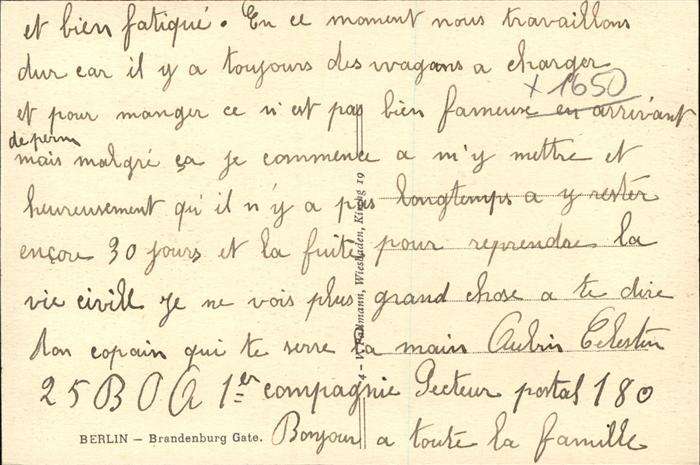 et bien fatigué. En ce moment nous travaillons
dur car il y a toujours des wagons a charger
x 1650
et pour manger ce n'est pas bien fameuse en arrivant
de perm
mais malgré ça je commence a m'y mettre et
heureusement qu'il n'y a pas longtemps a y rester
encore 30 jours et la fuite pour reprendre la
vie civile je ne vois plus grand chose a te dire
ton copain qui te serre la main Aubin Celestin
25 B O A 1ère compagnie Secteur postal 180
BERLIN – Brandenburg Gate.
Bonjour a toute la famille
Wiesbaden,
19